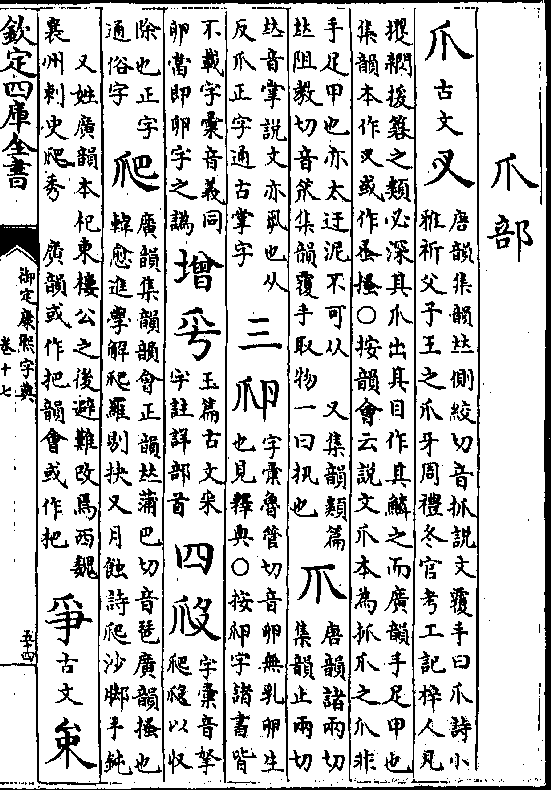 爪部
爪 古文 㕚 唐韻集韻𠀤側絞切音抓說文覆手曰爪詩小
雅祈父子王之爪牙周禮冬官考工記梓人凡
攫閷援簭之類必深其爪出其目作其鱗之而廣韻手足甲也
集韻本作㕚或作蚤搔○按韻會云說文爪本為抓爪之爪非
手足甲也亦太迂泥不可从 又集韻類篇
𠀤阻教切音笊集韻覆手取物一曰抓也
𤓯 唐韻諸兩切
集韻止兩切
𠀤音掌說文亦丮也从
反爪正字通古掌字
三
字彙魯管切音卵無乳卵生
也見釋典○按字諸書皆
不載字彙音義同
卵當即卵字之譌
增
玉篇古文釆
字註詳部首
四
字彙音拏
爬以收
除也正字
通俗字
爬 廣韻集韻韻會正韻𠀤蒲巴切音琶廣韻搔也
韓愈進學解爬羅剔抉又月蝕詩爬沙脚手鈍
又姓廣韻本杞東樓公之後避難改爲西魏
襄州刺史爬秀 廣韻或作把韻會或作把
爭 古文
欽定四庫全書
御定康熙字典
卷十七